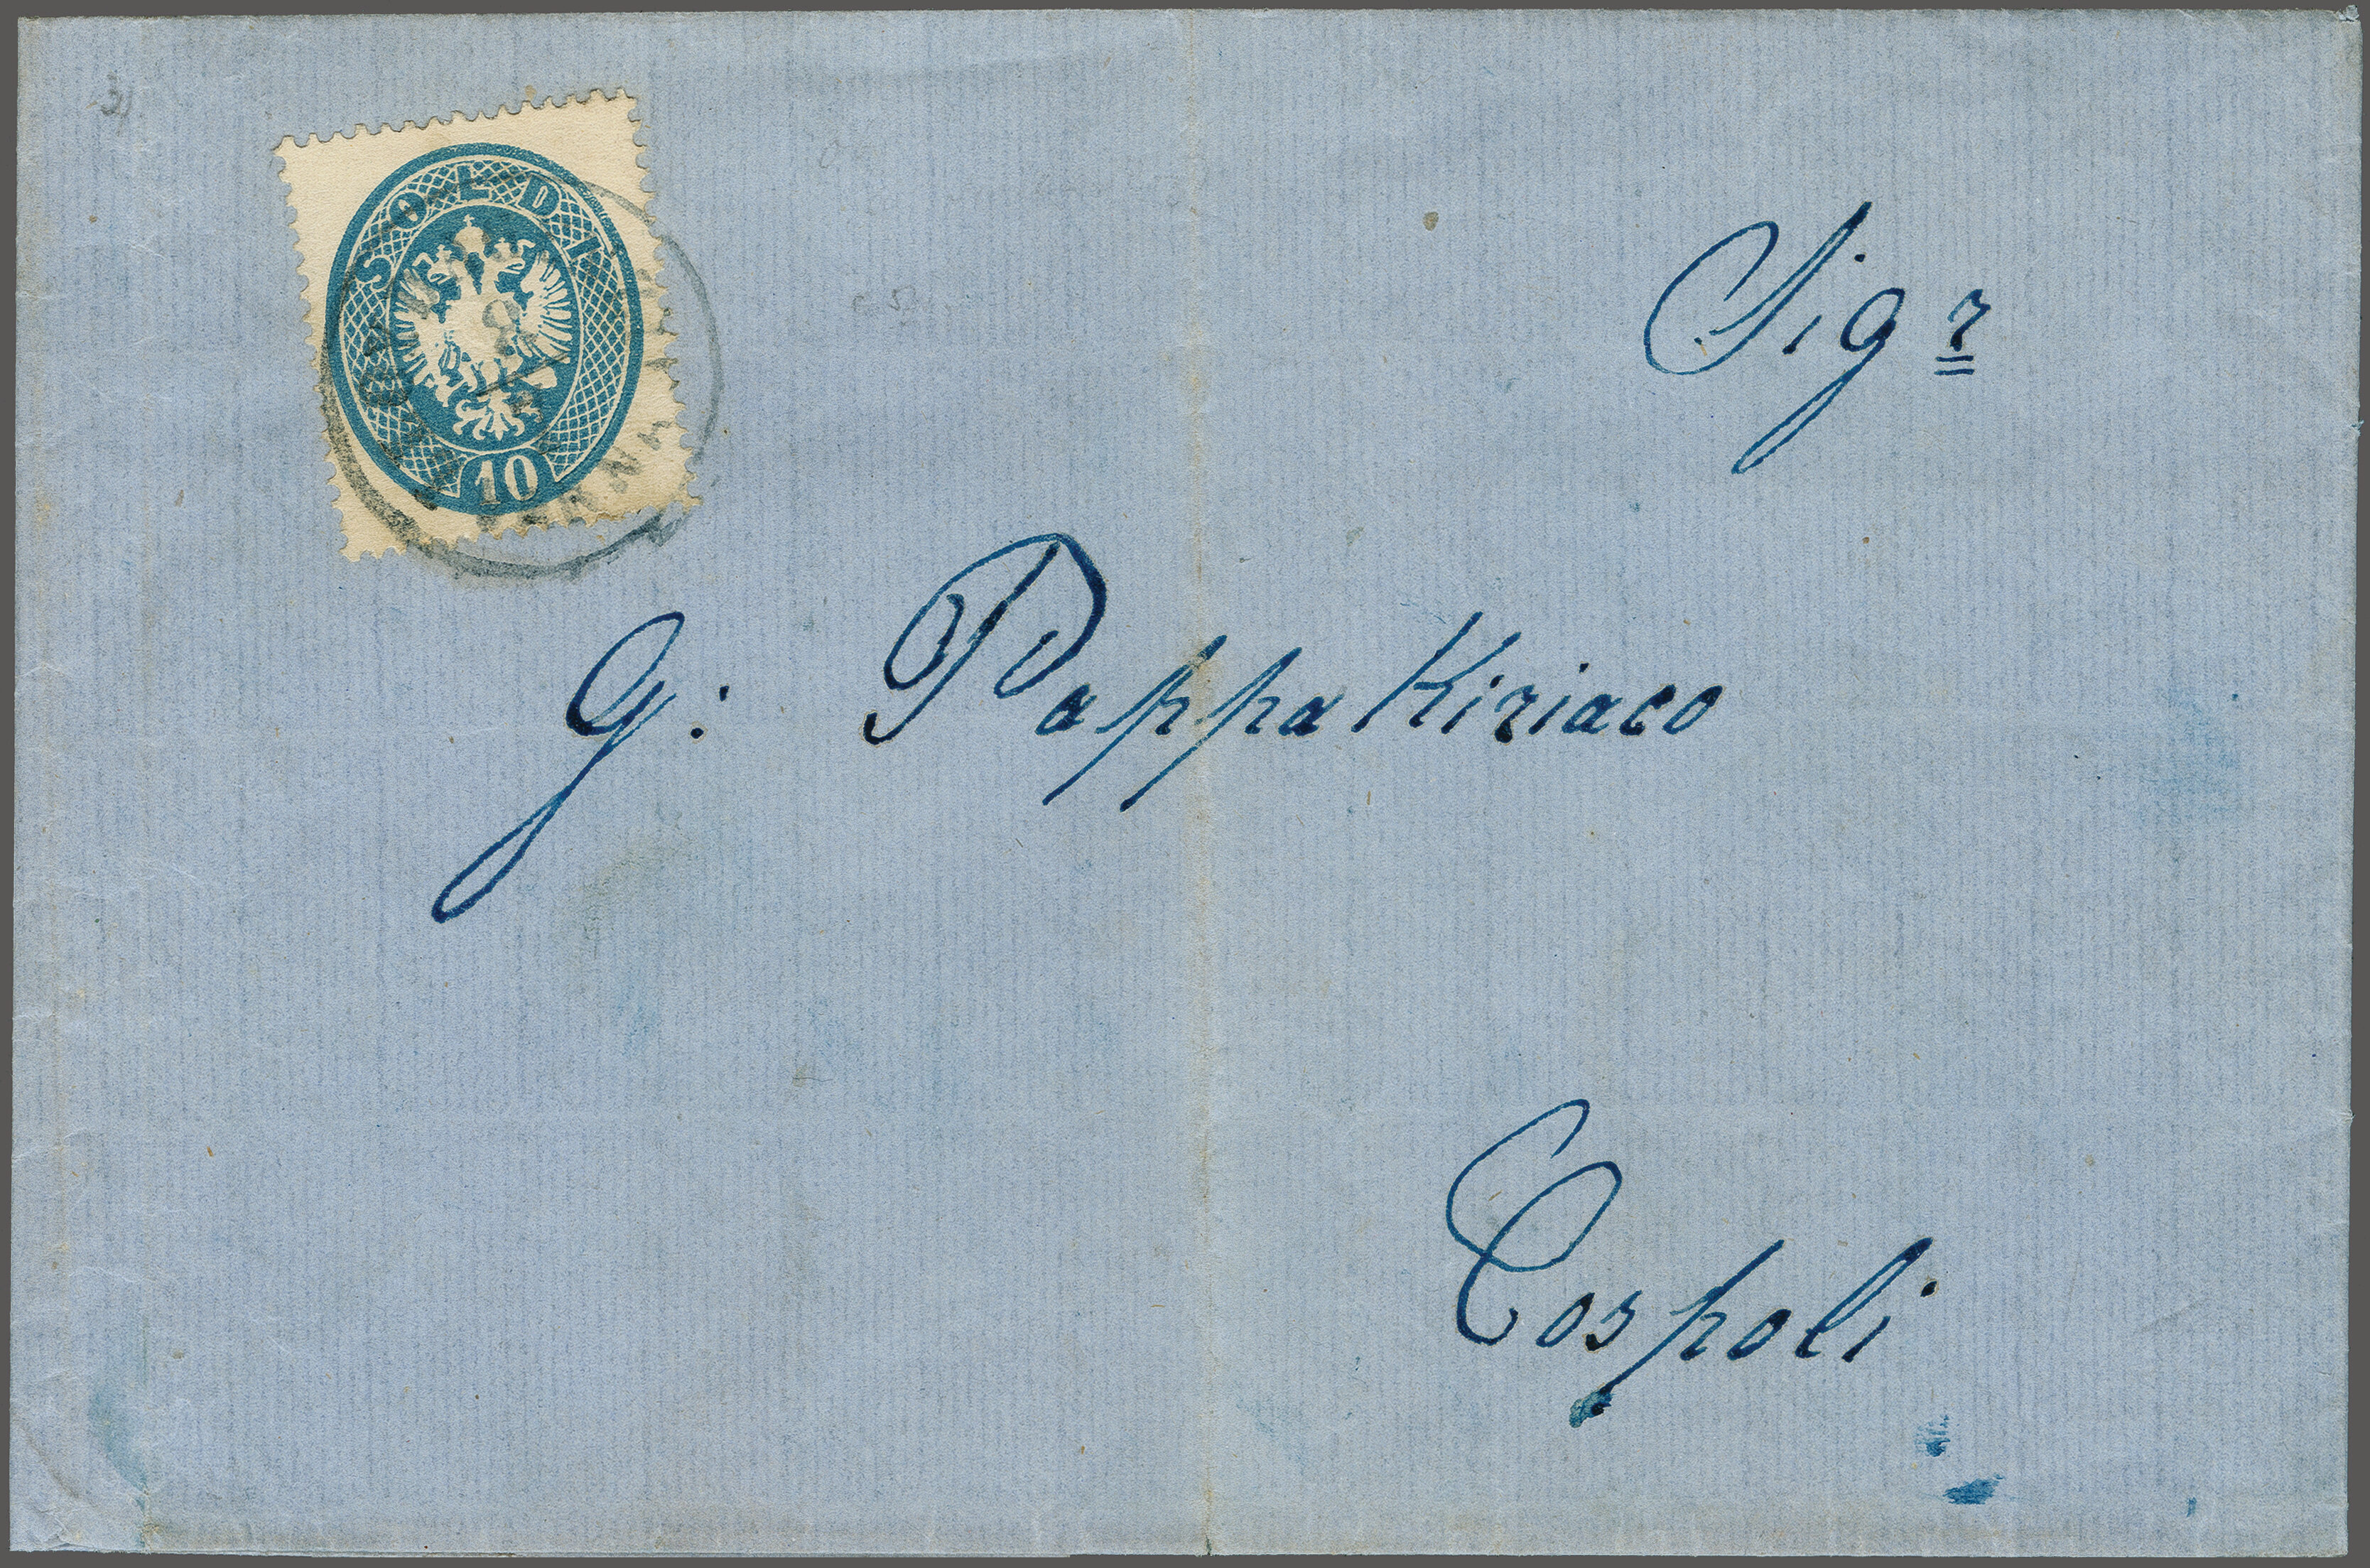 SOLDI
10
Sigr
G: PappaKiriaco
Cospoli